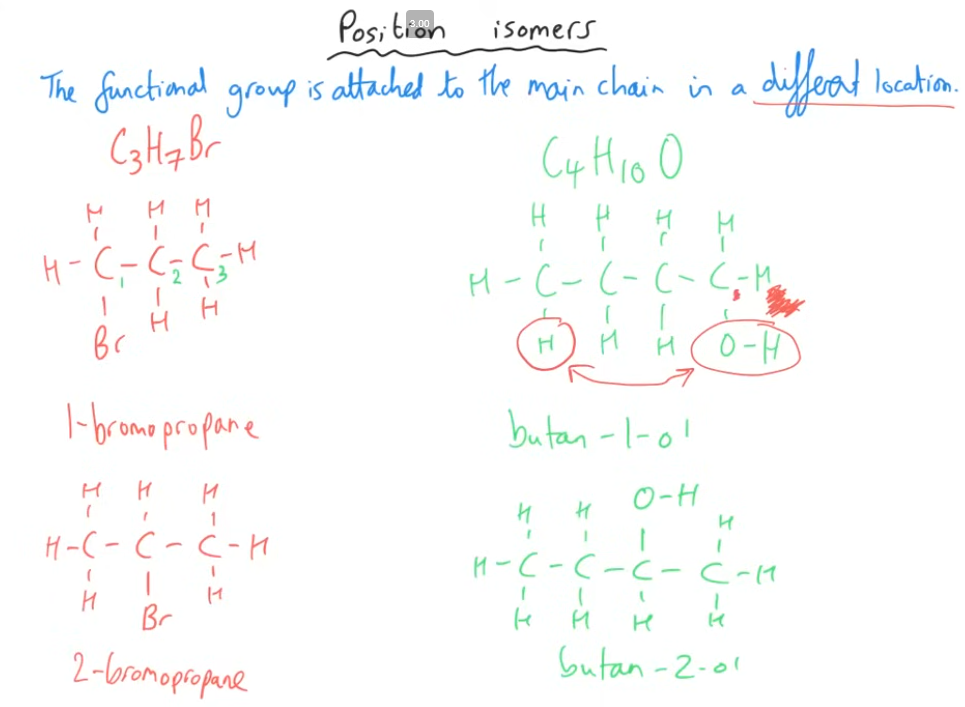 Position isomers
3.00
The functional group is attached to the main chain in a different location.
C3H7Br
H H H
H-C-C-C-H
1 2 3
Br H H
1-bromopropane
H H H
H-C-C-C-H
H Br H
2-bromopropane
C4H10O
H H H H
H-C-C-C-C-H
H H H O-H
butan-1-ol
H H O-H H
H-C-C-C-C-H
H H H H
butan-2-ol